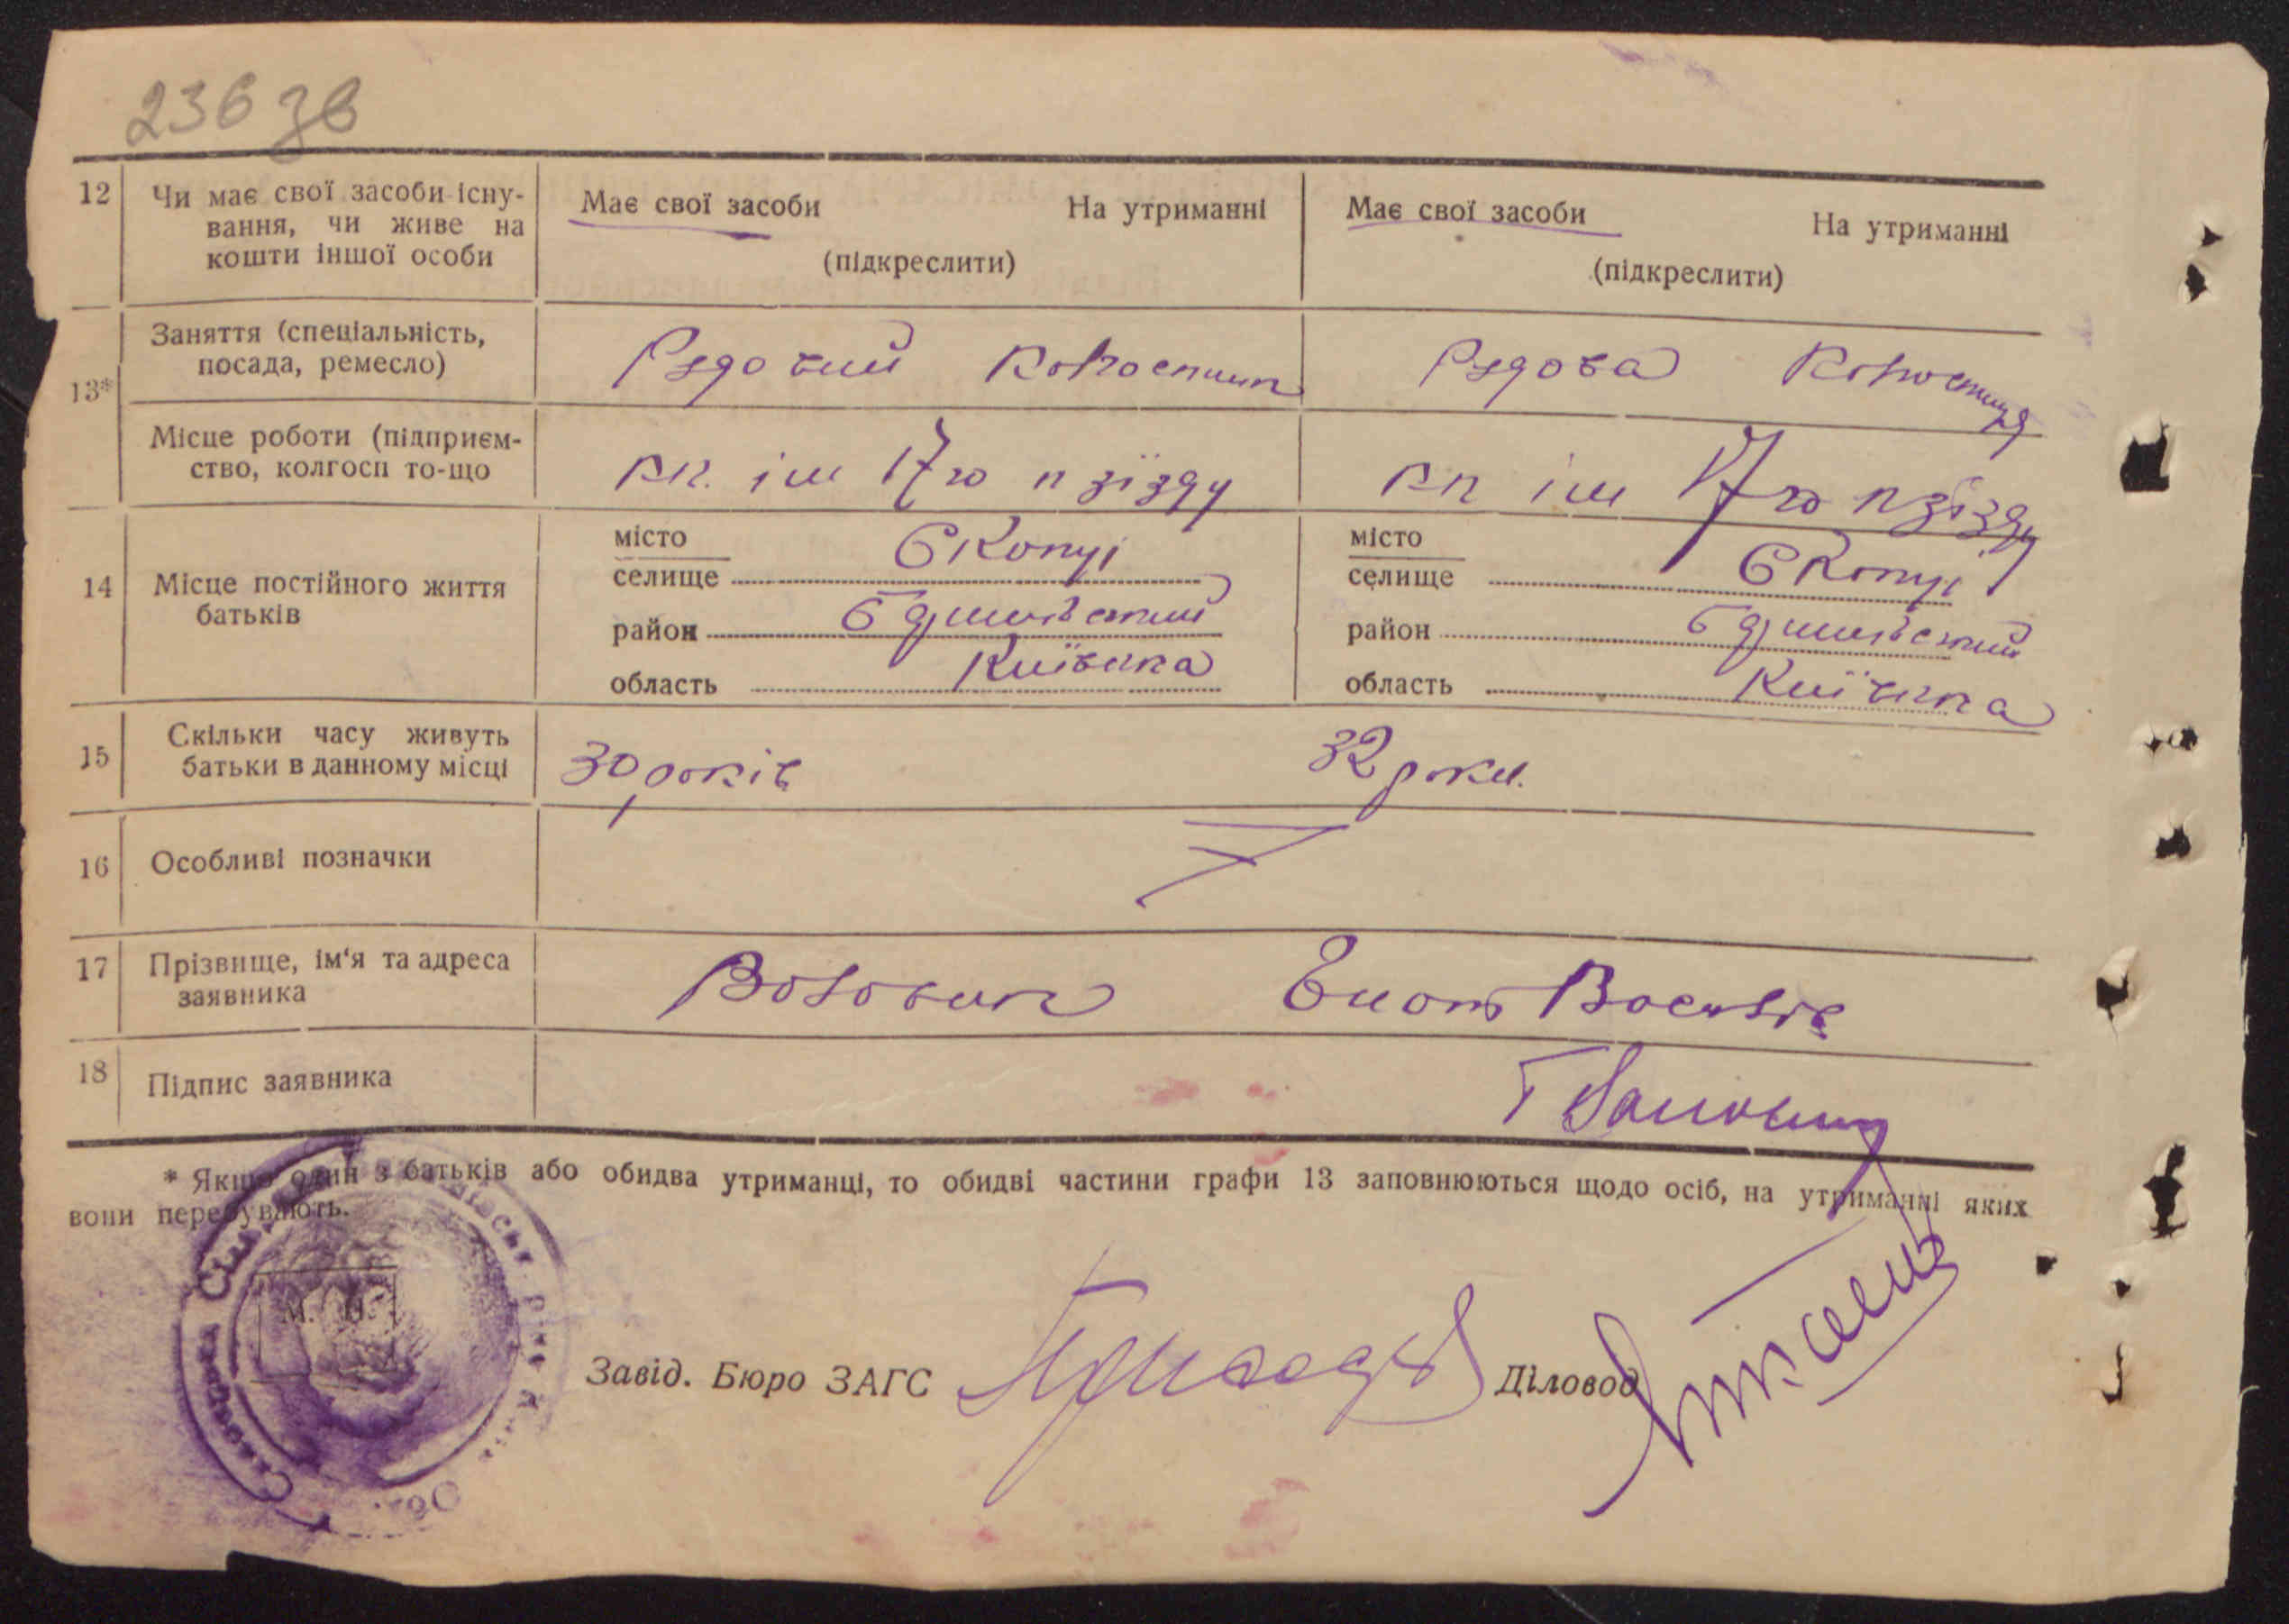 236 зв
12 Чи має свої засоби існу-
вання, чи живе на
кошти іншої особи
Має свої засоби На утриманні
(підкреслити)
Має свої засоби На утриманні
(підкреслити)
13*
Заняття (спеціальність,
посада, ремесло)
Рядовий колгоспник
Рядова колгоспниця
Місце роботи (підприєм-
ство, колгосп то-що
кп. ім 17го п зїзду
кп ім 17го п зїзду
14 Місце постійного життя
батьків
місто
селище Скопці
район
область Київська
місто
селище Скопці
район
область Київська
15 Скільки часу живуть
батьки в данному місці
30 років
32 роки.
16 Особливі позначки
17 Прізвище, ім'я та адреса
заявника
Воловик
18 Підпис заявника
* Якщо один з батьків або обидва утриманці, то обидві частини графи 13 заповнюються щодо осіб, на утриманні яких
вони перебувають.
М. П.
Завід. Бюро ЗАГС
Діловод